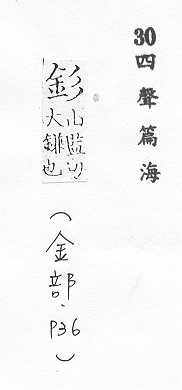 30四聲篇海
釤
山監切
大鎌也
（金部．P36）